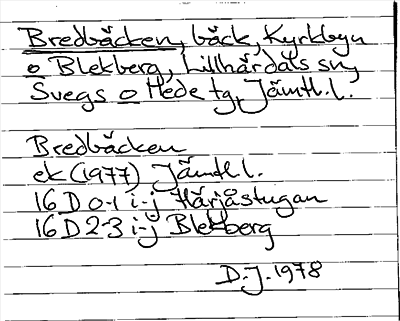 Bredbäcken, bäck, Kyrkbyn
o Blekberg, Lillhärdals sn,
Svegs o Hede tg, Jämtl. l.
Bredbäcken
ek (1977) Jämtl. l.
16 D 0-1 i-j Härjåstugan
16 D 2-3 i-j Blekberg
D. J. 1978